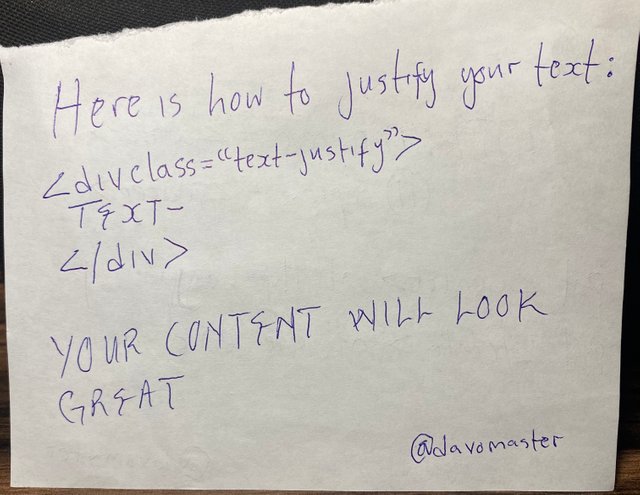 Here is how to justify your text:
<div class="text-justify">
TEXT-
</div>
YOUR CONTENT WILL LOOK
GREAT
@davomaster